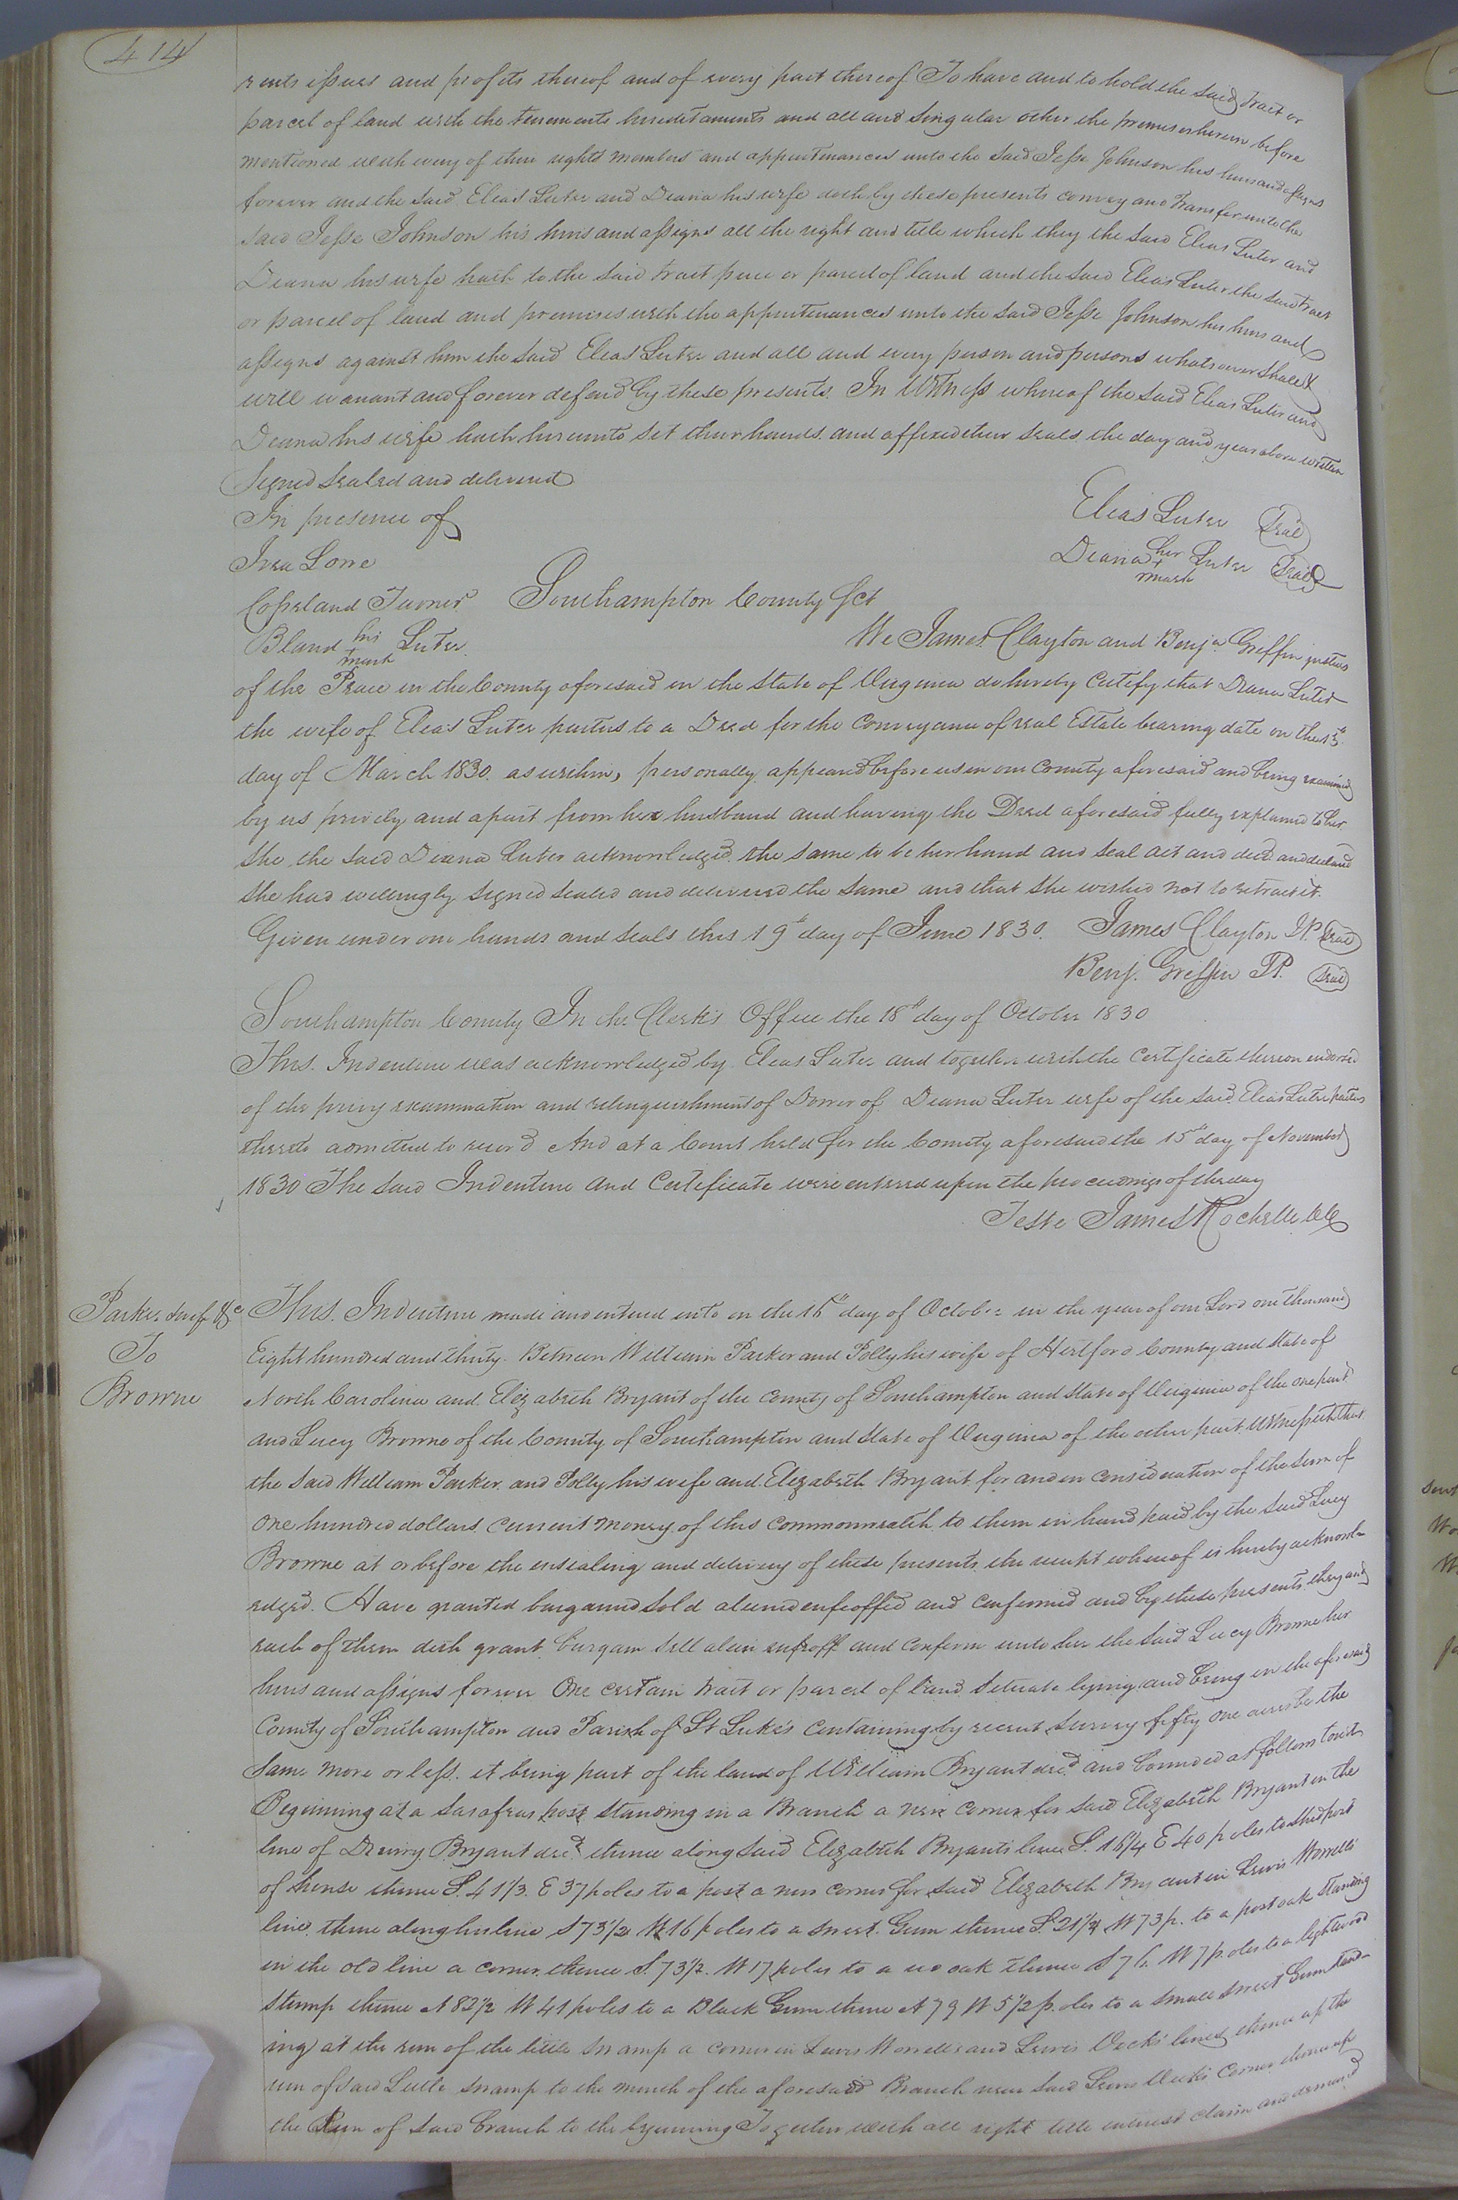 414
rents issues and profits thereof and of every part thereof To have and to hold the said tract or
parcel of land with the tenements hereditaments and all and singular other the premises herein before
mentioned with every of their rights members and appurtenances unto the said Jesse Johnson his heirs and assigns
forever and the said Elias Luter and Deana his wife doth by these presents convey and transfer unto the
said Jesse Johnson his heirs and assigns all the right and title which they the said Elias Luter and
Deana his wife hath to the said tract peice or parcel of land and the said Elias Luter the said tract
or parcel of land and premises with the appurtenances unto the said Jesse Johnson his heirs and
assigns against him the said Elias Luter and all and every person and persons whatsoever shall &
will warrant and forever defend by these presents. In Witness whereof the said Elias Luter and
Deana his wife hath hereunto set their hands and affixed their seals the day and year above written
Signed sealed and delivered
In presence of
Elias Luter Seal
Ivea Lone
Deana her + mark Luter Seal
Copeland Turner
Southampton County Sct
Bland his + mark Luter
We James Clayton and Benja Griffin justices
of the Peace in the County aforesaid in the State of Virginia do hereby Certify that Deana Luter
the wife of Elias Luter parties to a Deed for the Conveyance of real Estate bearing date on the 15th
day of March 1830. as within, personally appeared before us in our County aforesaid and being examined
by us privily and apart from her husband and having the Deed aforesaid fully explained to her
she the said Deana Luter acknowledged the same to be her hand and seal act and deed and declared
she had willingly signed sealed and delivered the same and that she wished not to retract it.
Given under our hands and seals this 19th day of June 1830. James Clayton J.P. Seal
Benj. Griffin J.P. Seal
Southampton County In the Clerk's Office the 18th day of October 1830
This Indenture was acknowledged by Elias Luter and together with the Certificate thereon endorsed
of the privy examination and relinquishment of Dower of Deana Luter wife of the said Elias Luter parties
thereto admitted to record And at a Court held for the County aforesaid the 15th day of November
1830 The said Indenture and Certificate were entered upon the proceedings of the day
Teste James Rochelle Clk
Parker & wife &c
To
Browne
This Indenture made and entered into on the 16th day of October in the year of our Lord one thousand
Eight hundred and thirty. Between William Parker and Polly his wife of Hertford County and State of
North Carolina and Elizabeth Bryant of the County of Southampton and State of Virginia of the one part
and Lucy Browne of the County of Southampton and State of Virginia of the other part. Witnesseth that
the said William Parker and Polly his wife and Elizabeth Bryant for and in consideration of the sum of
One hundred dollars current money of this commonwealth to them in hand paid by the said Lucy
Browne at or before the ensealing and delivery of these presents the receipt whereof is hereby acknowl-
edged. Have granted bargained sold aliened enfeoffed and confirmed and by these presents they and
each of them doth grant bargain sell alien enfeoff and confirm unto her the said Lucy Browne her
heirs and assigns forever One certain tract or parcel of land situate lying and being in the aforesaid
County of Southampton and Parish of St Luke's Containing by recent survey fifty one acres be the
same more or less. it being part of the land of William Bryant decd. and bounded as follows towit
Beginning at a Sasafras post standing in a Branch a new corner for said Elizabeth Bryant in the
line of Drewry Bryant decd. thence along said Elizabeth Bryants line S. 16¼ E 40 poles to the post
of hense thence S. 41⅓. E 37 poles to a post a new corner for said Elizabeth Bryant in Lewis Worrells
line, thence along his line S 73½ W 16 poles to a sweet Gum thence S. 21¼ W 73 p. to a post oak standing
in the old line a corner thence S 73½. W 17 poles to a red oak thence W 7 poles to a lightwood
stump thence N 82½ W 41 poles to a Black Gum thence N 79 W 5½ poles to a small sweet Gum stand-
ing at the run of the little swamp a corner in Lewis Worrells and Lewis lines thence up the
run of said Little swamp to the mouth of the aforesaid Branch near said Lewis Corner thence up
the Run of said branch to the beginning Together with all right title interest claim and demand